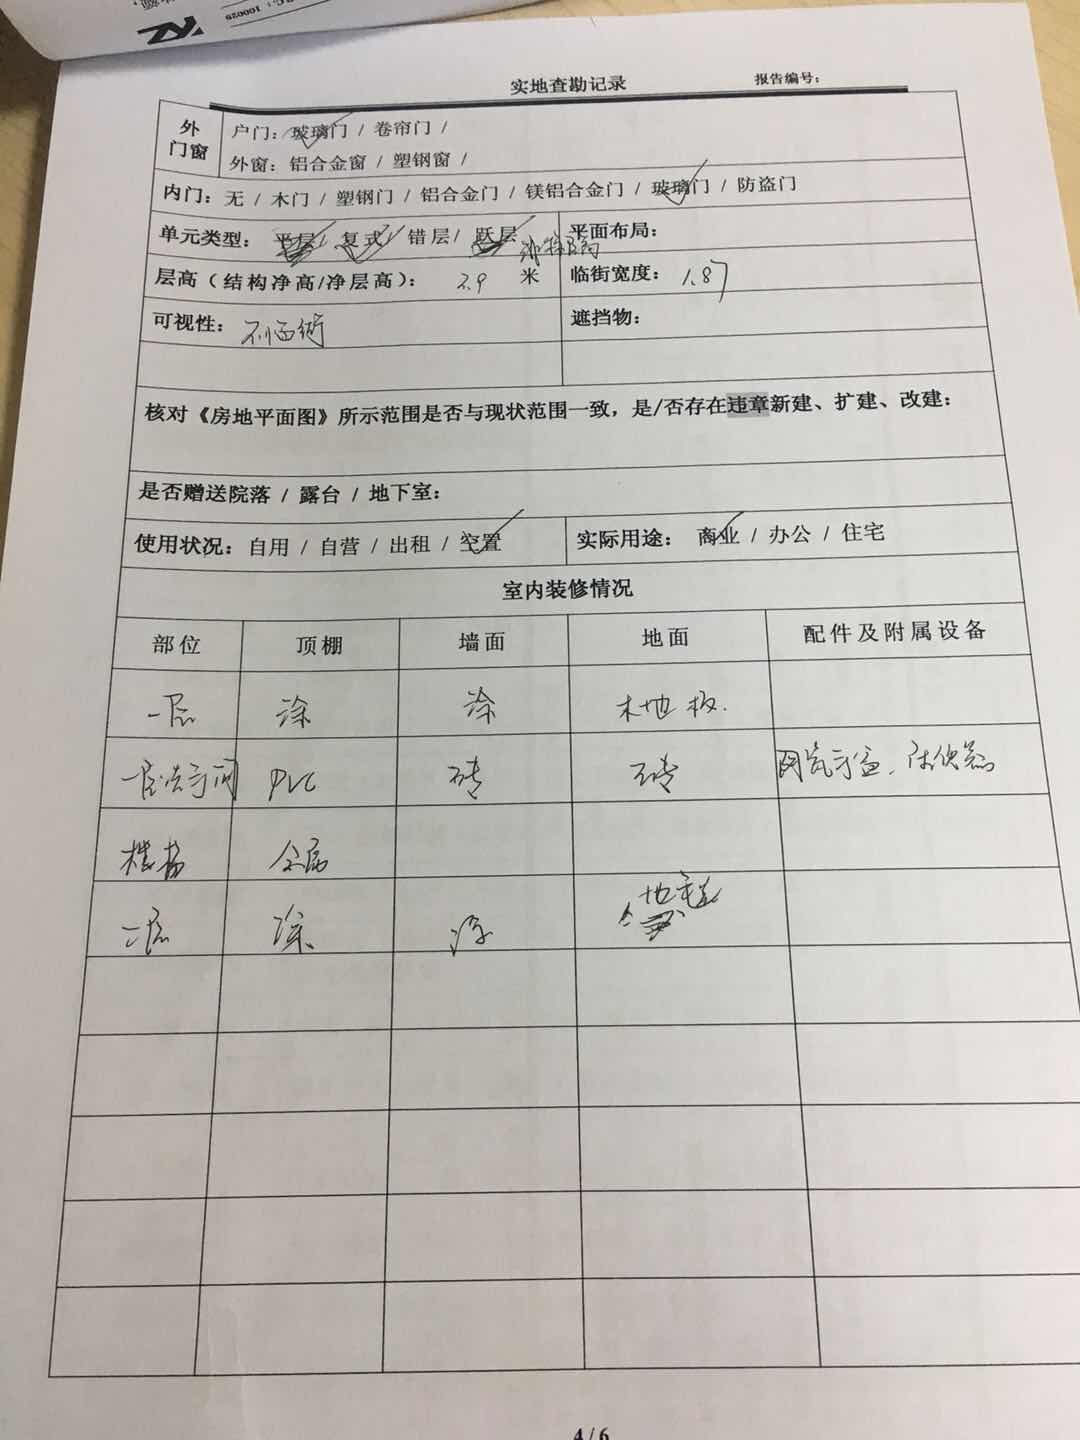 100026
实地查勘记录 报告编号：
外门窗 户门：玻璃门 / 卷帘门 /
外窗：铝合金窗 / 塑钢窗 /
内门：无 / 木门 / 塑钢门 / 铝合金门 / 镁铝合金门 / 玻璃门 / 防盗门
单元类型：平层/ 复式/ 错层/ 跃层 平面布局：
层高（结构净高/净层高）： 2.9 米 临街宽度：1.87
可视性：不临街 遮挡物：
核对《房地平面图》所示范围是否与现状范围一致，是/否存在违章新建、扩建、改建：
是否赠送院落 / 露台 / 地下室：
使用状况：自用 / 自营 / 出租 / 空置 实际用途： 商业 / 办公 / 住宅
室内装修情况
部位 顶棚 墙面 地面 配件及附属设备
一层 涂 涂 木地板.
一层卫生间 PVC 砖 砖
楼梯 金属
二层 涂 涂 地毯
4 / 6